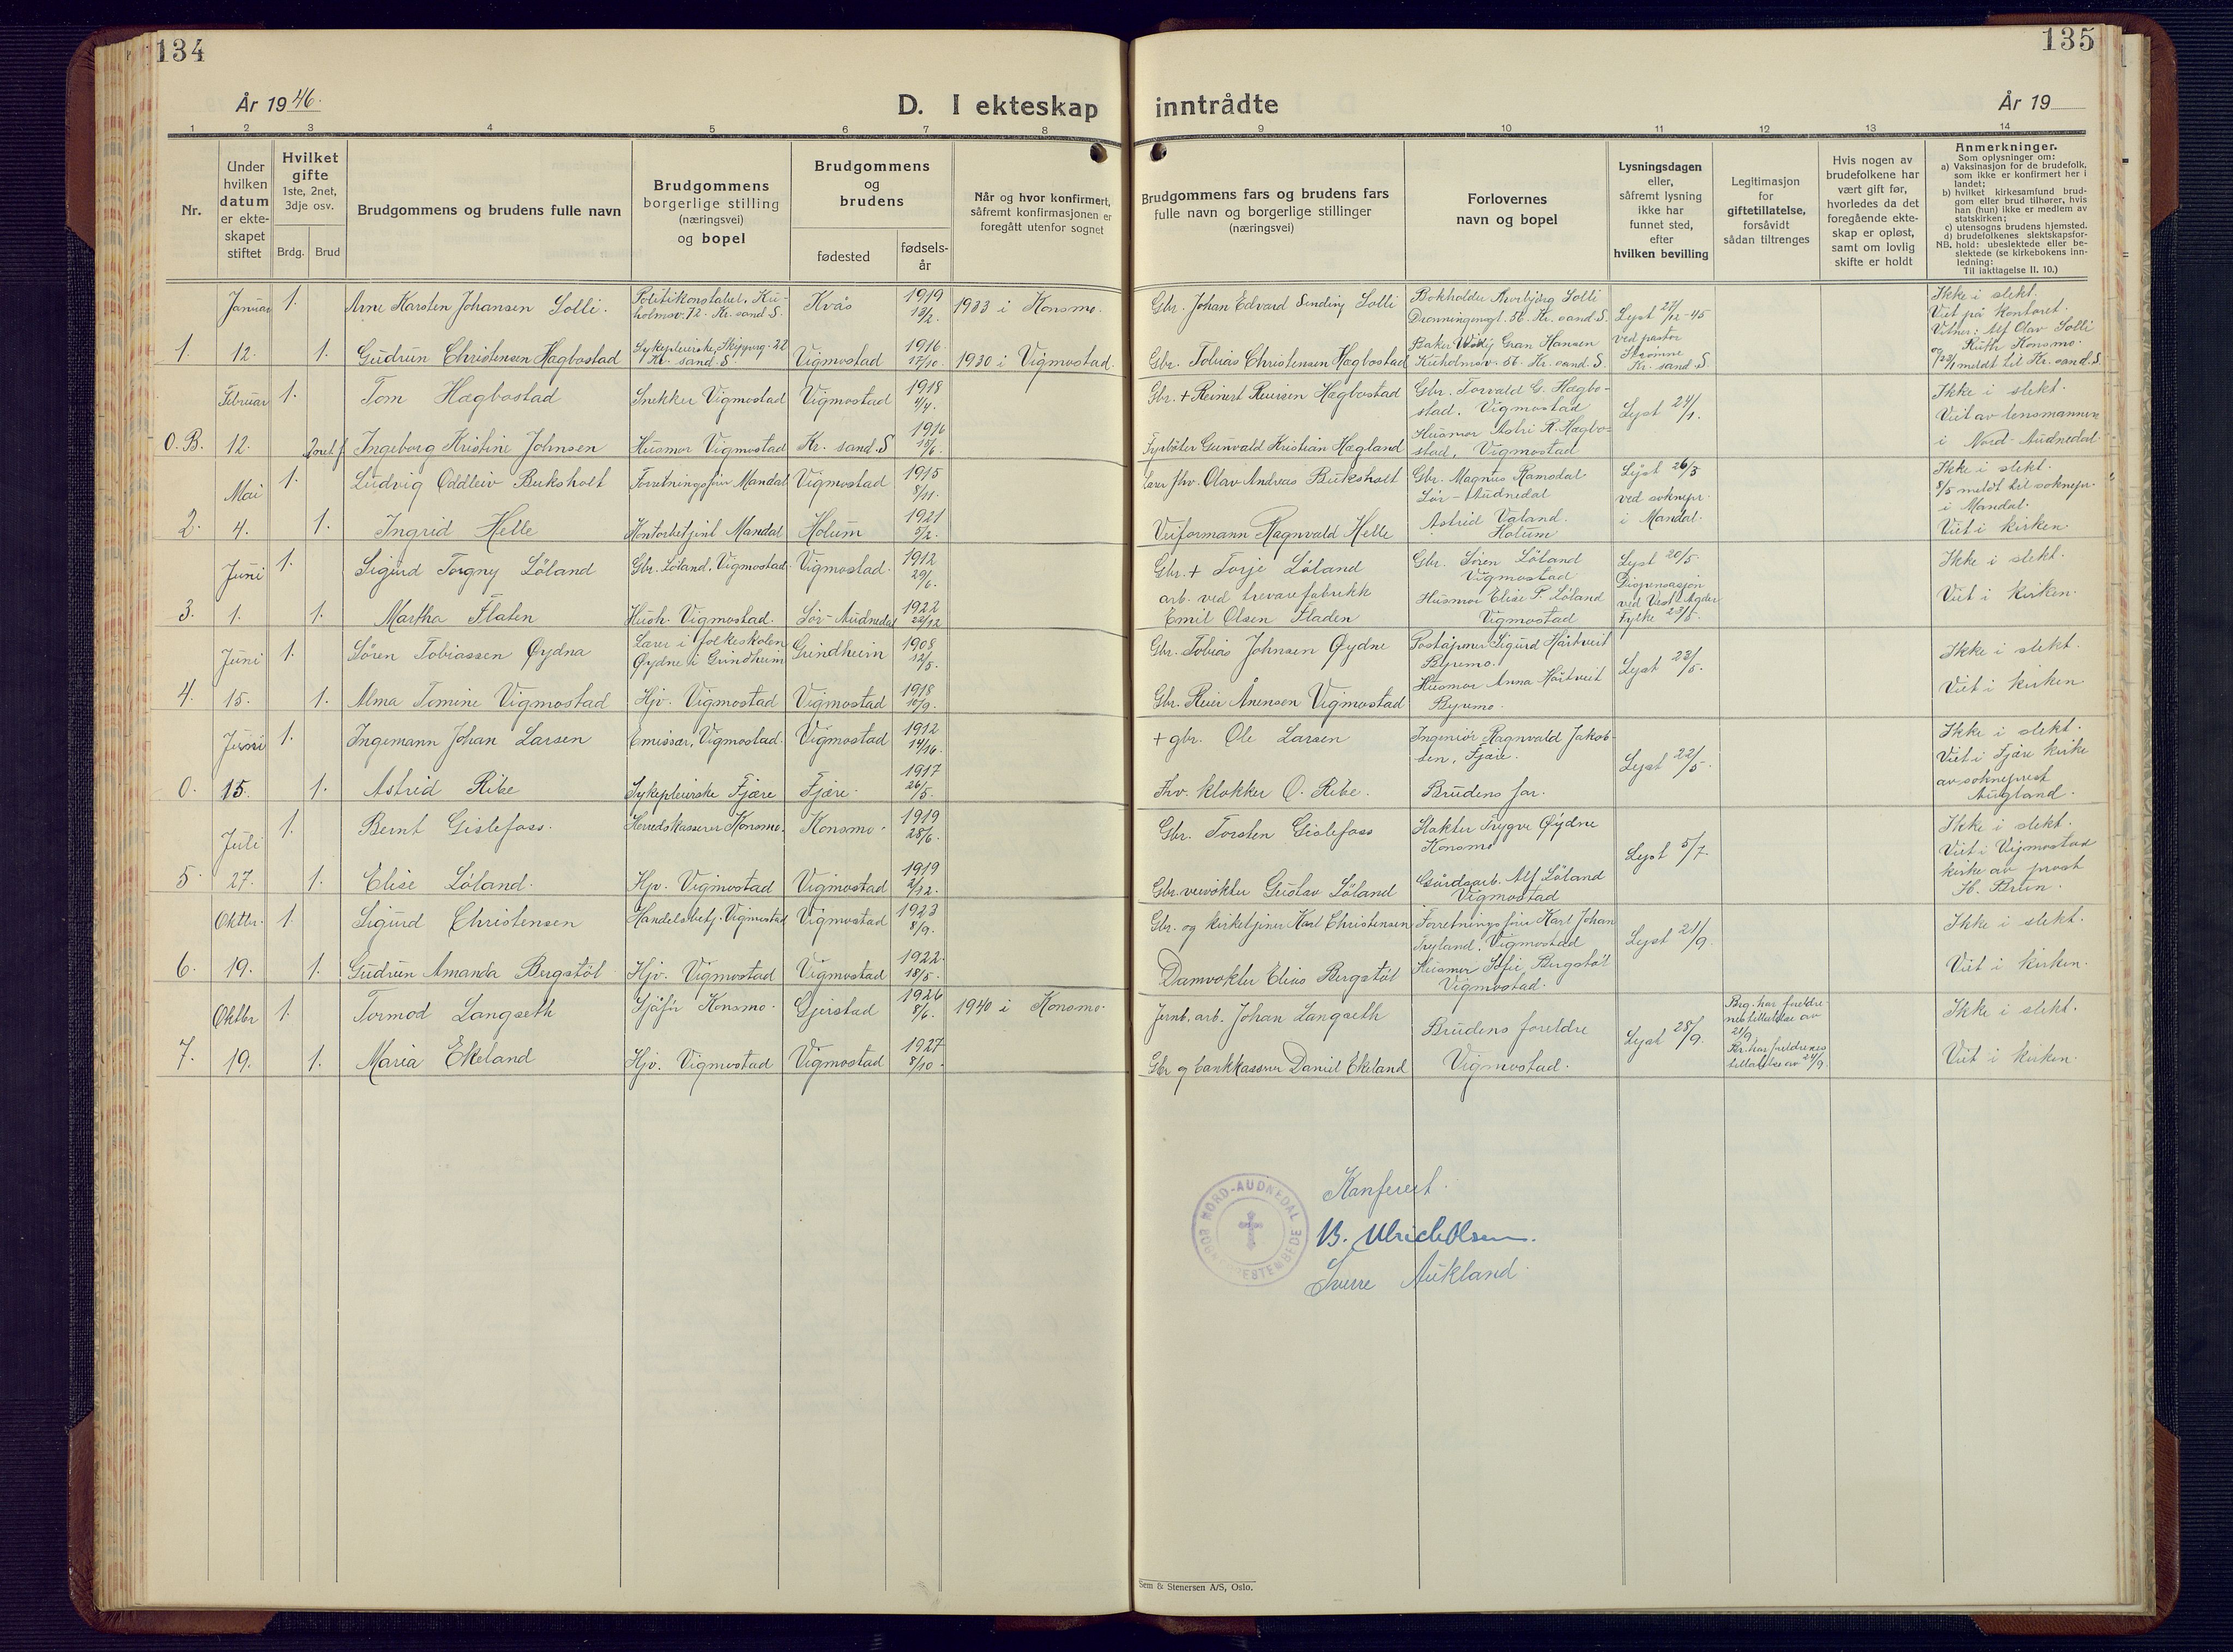 134
135
År 1946.
D. I ekteskap
inntrådte
År 19
1 2 3 4 5 6 7 8 9 10 11 12 13 14
Nr.
Under hvilken datum er ekte-skapet stiftet
Hvilket gifte
1ste, 2net, 3dje osv.
Brdg. Brud
Brudgommens og brudens fulle navn
Brudgommens borgerlige stilling (næringsvei) og bopel
Brudgommens og brudens
fødested
fødsels-år
Når og hvor konfirmert, såfremt konfirmasjonen er foregått utenfor sognet
Brudgommens fars og brudens fars fulle navn og borgerlige stillinger (næringsvei)
Forlovernes navn og bopel
Lysningsdagen eller, såfremt lysning ikke har funnet sted, efter hvilken bevilling
Legitimasjon for giftetillatelse, forsåvidt sådan tiltrenges
Hvis nogen av brudefolkene har vært gift før, hvorledes da det foregående ekte-skap er opløst, samt om lovlig skifte er holdt
Anmerkninger.
Som oplysninger om:
a) Vaksinasjon for de brudefolk, som ikke er konfirmert her i landet;
b) hvilket kirkesamfund brud-gom eller brud tilhører, hvis han (hun) ikke er medlem av statskirken;
c) utensogns brudens hjemsted.
d) brudefolkenes slektskapsfor-
NB. hold: ubeslektede eller be-slektede (se kirkebokens inn-ledning:
Til iakttagelse II. 10.)
Januar 1. Arne Karsten Johansen Solli. Politikonstabel, Ku-holmsv. 72. Kr. sand S. Kvås 1919 13/2. 1933 i Konsmo. Gbr. Johan Edvard Sinding Solli Bokholder Solli Dronningensgt. 56. Kr. sand S. Lyst 27/12-45 Ikke i slekt. Viet på Kontoret.
1. 12. 1. Gudrun Christensen Hægbostad Sykepleierske, Skipperg. 22 Kr. sand S. Vigmostad 1916 17/10. 1930 i Vigmostad. Gbr. Tobias Christensen Hægbostad Baker Gran Hansen Kuholmsv. 56. Kr. sand S. ved pastor Strømme Kr. sand S. Vitner: Alf Olav Solli Ruth Konsmo. meldt til Kr. sand. S.
Februar 1. Tom Hægbostad Snekker Vigmostad Vigmostad 1918 4/4. Gbr. + Reinert Reiersen Hægbostad Gbr. Torvald G. Hægbo-stad. Vigmostad Lyst 24/1. Ikke i slekt. Viet av lensmannen
O.B. 12. Ingeborg Kristine Johnsen Husmor Vigmostad Kr. sand. S 1916 15/6. Fyrbøter Gunvald Kristian Hægland Husmor Astri R. Hægbo-stad, Vigmostad i Nord-Audnedal
Mai 1. Ludvig Oddleiv Buksholt Forretningsfür Mandal Vigmostad 1915 8/11. Lærer fhv. Olav Andreas Buksholt Gbr. Magnus Ramsdal Sør-Audnedal Lyst 26/3 ved soknepr. i Mandal. Ikke i slekt. 8/5 meldt til soknepr. i Mandal.
2. 4. 1. Ingrid Helle Kontorbetjent Mandal Holum 1921 5/2. Veiformann Ragnvald Helle Astrid Valand. Holum Viet i kirken.
Juni 1. Sigurd Torgny Löland Gbr. Löland, Vigmostad. Vigmostad. 1912 29/6. Gbr. + Torje Löland Gbr. Sören Löland Vigmostad Lyst 20/5. Ikke i slekt.
3. 1. 1. Martha Flaten Hush. Vigmostad. Sör-Audnedal 1922 22/12 arb. ved trevarefabrikk Emil Olsen Fladen Husmor Elise T. Löland Vigmostad Dispensasjon ved Vest-Agder Fylke 23/5. Viet i kirken.
Juni 1. Sören Tobiassen Øydna Lærer i folkeskolen Øydne i Grindheim Grindheim 1908 12/5. Gbr. Tobias Johnsen Øydne Poståpner Sigurd Hårtveit Byremo. Lyst 23/5. Ikke i slekt.
4. 15. 1. Alma Tomine Vigmostad Hjv. Vigmostad Vigmostad 1918 10/9. Gbr. Reier Ånensen Vigmostad Husmor Anna Hårtveit Byremo. Viet i kirken
Juni 1. Ingemann Johan Larsen Emissær, Vigmostad. Vigmostad 1912 14/16. + gbr. Ole Larsen Ingeniör Ragnvald Jakob-sen, Fjære. Lyst 22/5. Ikke i slekt. Viet i Fjære kirke
O. 15. 1. Astrid Ribe Sykepleierske Fjære Fjære. 1917 26/5. Fhv. klokker O. Ribe. Brudens far. av sokneprest Augland.
Juli 1. Bernt Gislefoss. Herredskasserer Konsmo. Konsmo. 1919 28/6. Gbr. Torsten Gislefoss Slakter Trygve Øydne Konsmo Lyst 5/7. Ikke i slekt. Viet i Vigmostad
5. 27. 1. Elise Löland. Hjv. Vigmostad Vigmostad 1919 2/12. Gbr. veivokter Gustav Löland Gårdsarb. Alf Löland Vigmostad kirke av prost H. Brun.
Oktbr. 1. Sigurd Christensen Handelsbetj. Vigmostad Vigmostad 1923 8/9. Gbr. og kirketjener Karl Christensen Forretningsfür Karl Johan Tryland. Vigmostad Lyst 21/9. Ikke i slekt.
6. 19. 1. Gudrun Amanda Bergstöl Hjv. Vigmostad Vigmostad 1922 18/5. Damvokter Elias Bergstöl Husmor Sofie Bergstöl Vigmostad. Viet i kirken.
Oktbr 1. Tormod Langseth Sjåfør Konsmo. Gjerstad 1926 8/6. 1940 i Konsmo. Jernb. arb. Johan Langseth Brudens foreldre Lyst 28/9. Brg. har foreldre-nes tillatelse av 21/9 Ikke i slekt.
7. 19. 1. Maria Ekeland Hjv. Vigmostad Vigmostad 1927 8/10. Gbr og bankkasserer Daniel Ekeland Vigmostad. Br. har foreldrenes tillatelse av 24/9. Viet i kirken.
NORD-AUDNEDAL SOGNEPRESTEMBEDE
Konferert.
B. Ulrich Olsen.
Sverre Aukland.
Sem & Stenersen A/S, Oslo.